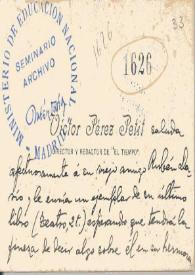 33
1626
1626
MINISTERIO DE EDUCACIÓN NACIONAL
SEMINARIO
ARCHIVO
MADRID
Víctor Pérez Petit saluda
DIRECTOR Y REDACTOR DE "EL TIEMPO"
afectuosamente a su viejo amigo Rubén Da-
río, le envía un ejemplar de su último
libro (Teatro, 2º.) esperando que tendrá la
fineza de decir algo sobre él en su hermosa